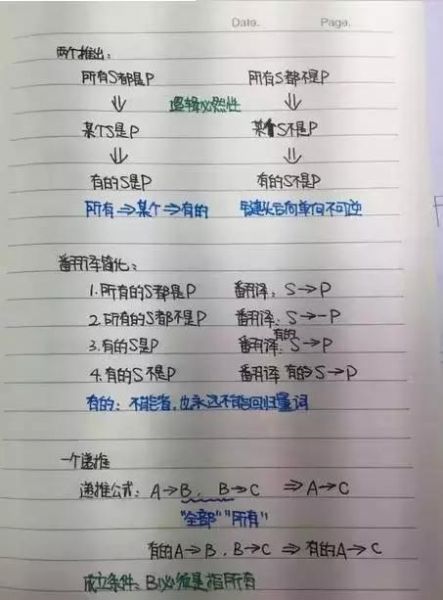 Date. Page.
两个推出：
所有S都是P 所有S都不是P
⇓ 逻辑必然性 ⇓
某个S是P 某个S不是P
⇓ ⇓
有的S是P 有的S不是P
所有⇒某个⇒有的 箭头方向单向不可逆
翻译简化：
1.所有的S都是P 翻译：S→P
2.所有的S都不是P 翻译：S→-P
3.有的S是P 翻译：有的S→P
4.有的S不是P 翻译 有的S→P
有的：不能省，也永远不能回归量词
一个递推
递推公式：A→B、B→C ⇒A→C
"全部""所有"
有的A→B、B→C ⇒有的A→C
成立条件：B必须是指所有